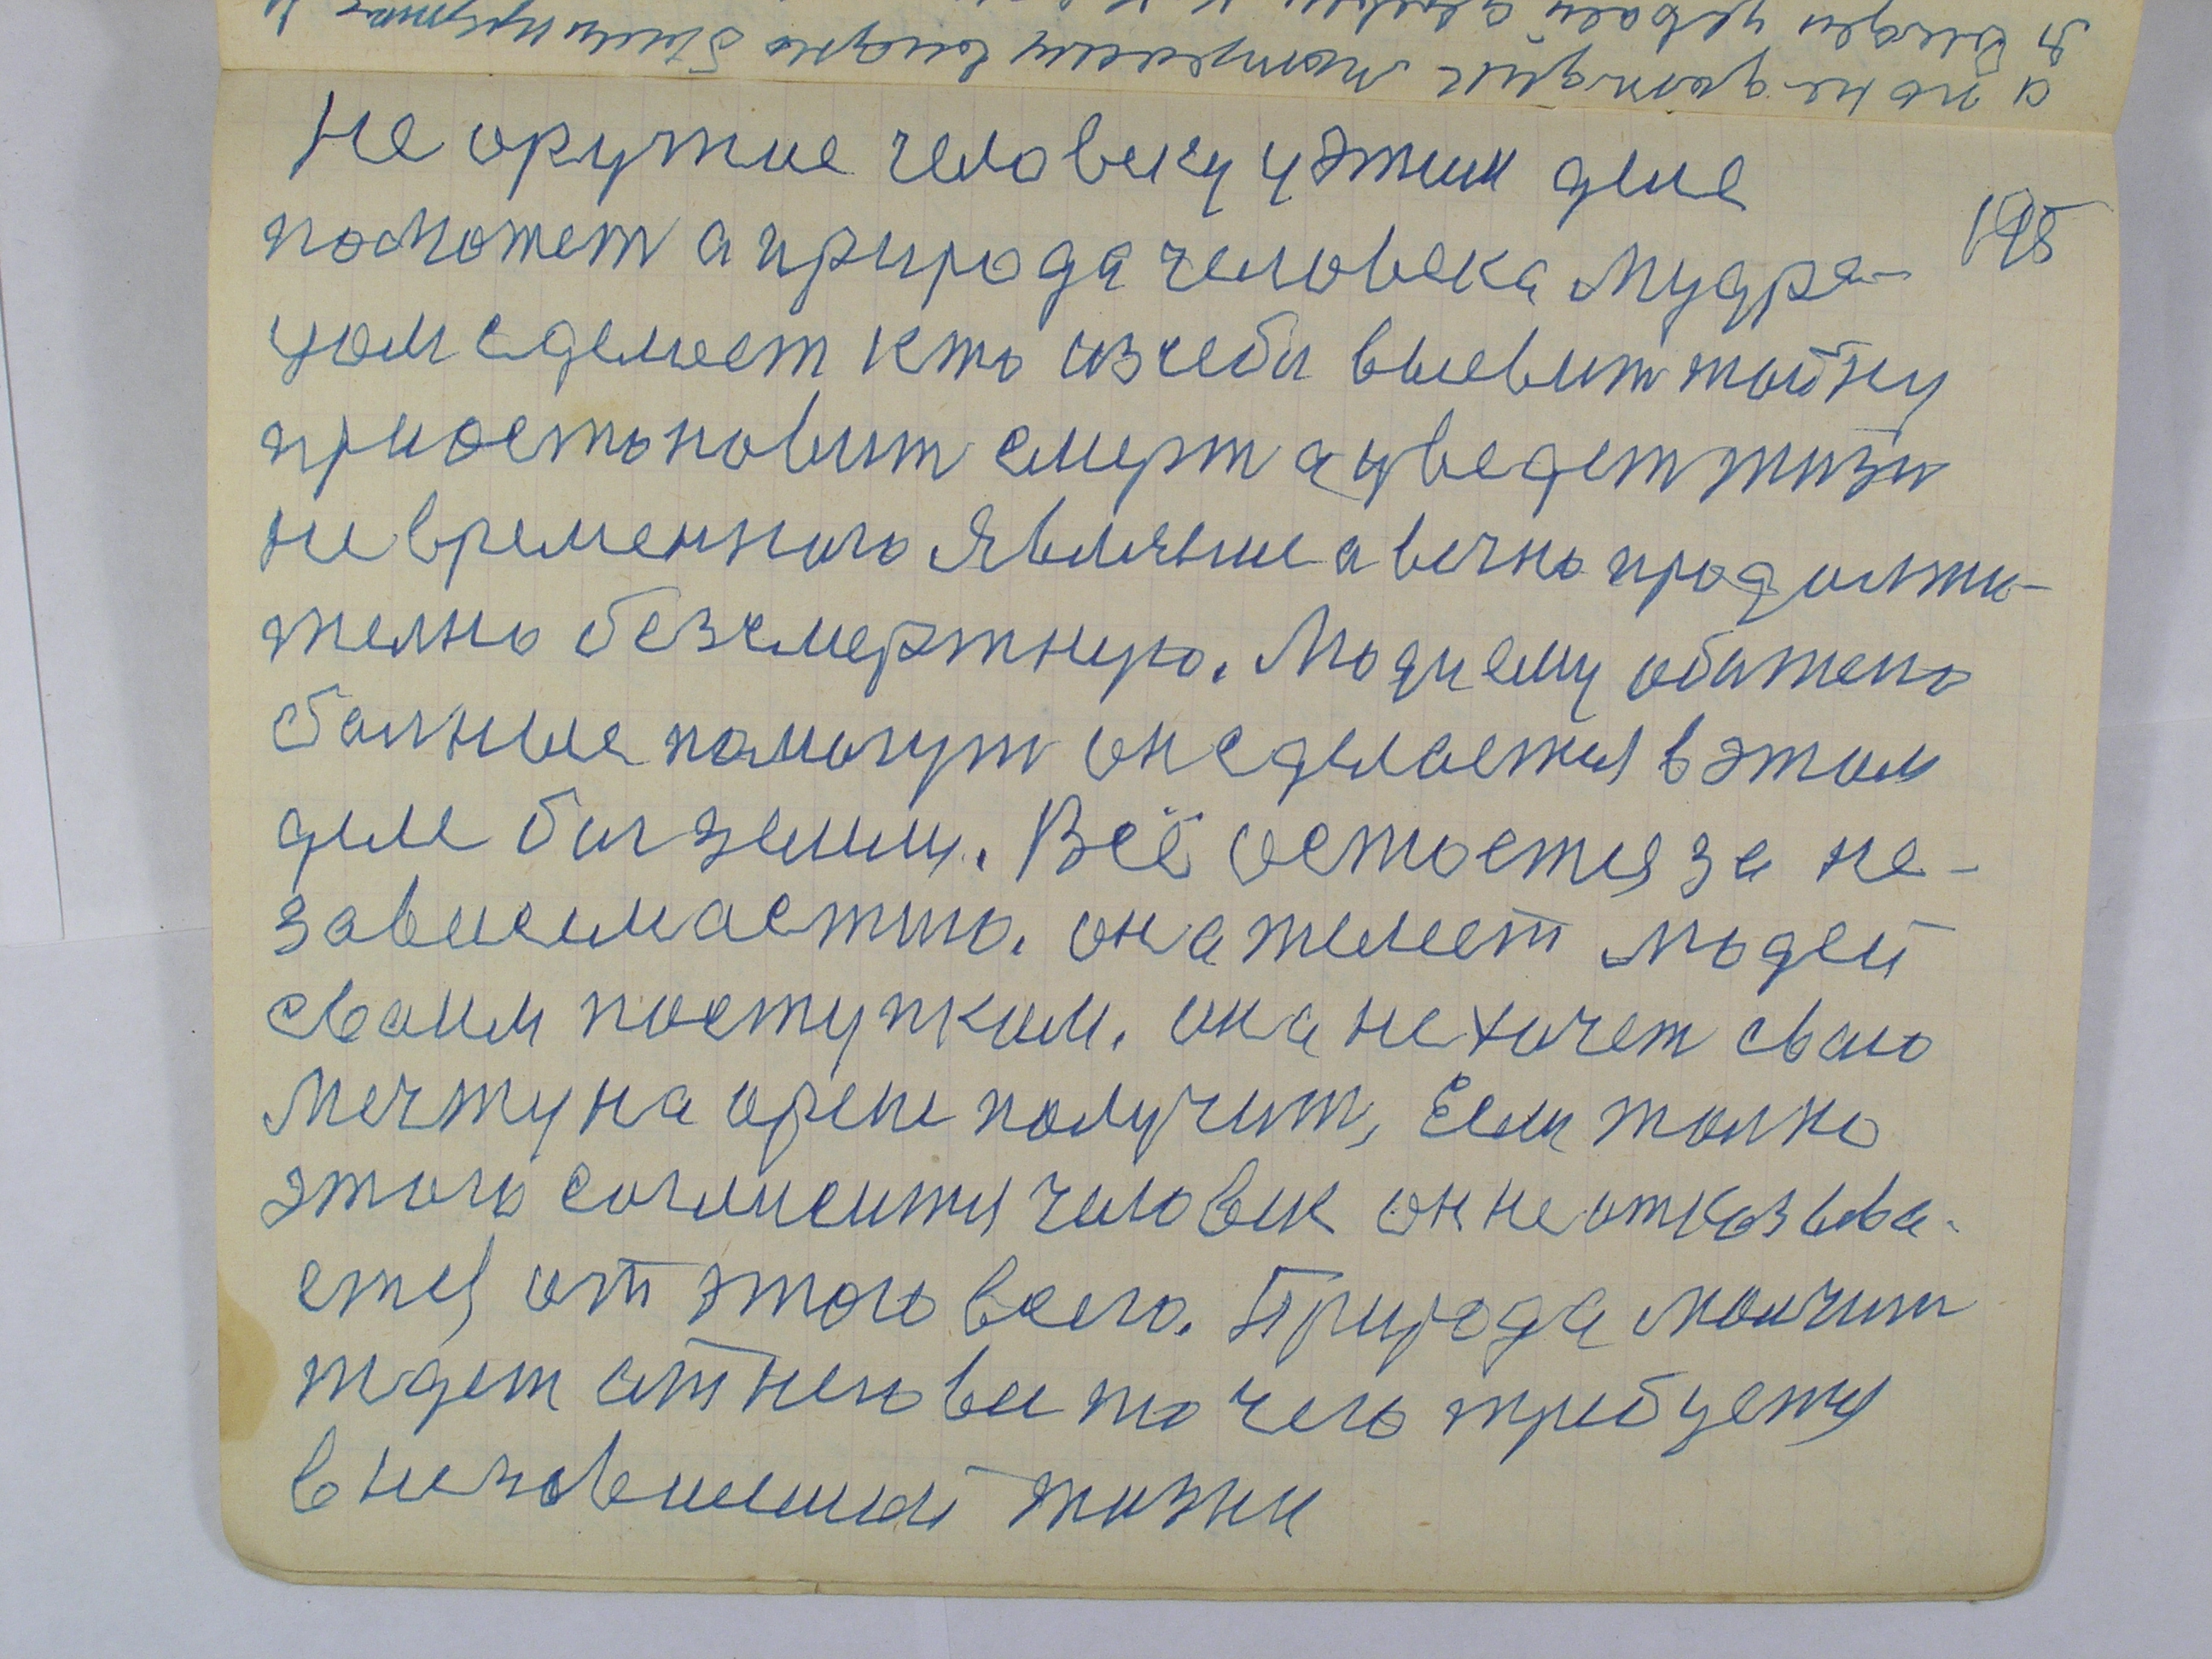 Не оружие человеку у этим деле
195
поможет а природа человека мудре-
цом сделает кто из себя выевит тайну
приостановит смерт а введет жизн
не временного явление а вечно продолжи-
телно безсмертную. Людчему обижено
болные помогут он сделается в этом
деле бигземли. Всё остается за не-
зависимастию. она желает людей
своим поступкам. она не хочет сваю
мечту на орене получит, Если толко
этого согласится человек он не отказыва-
ется от этого всего. Природа молчит
ждет от него все то чего требуется
в независимай жизни